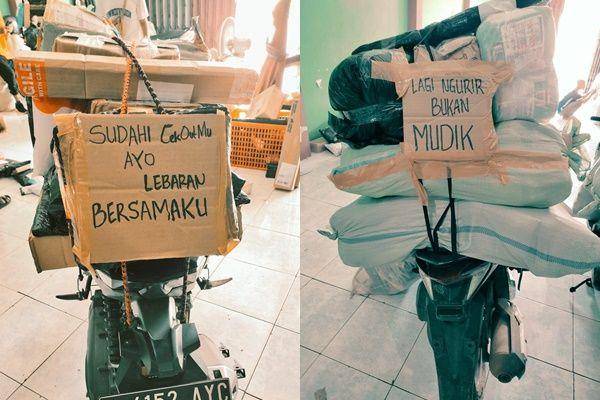 SUDAHI CekOutMu
AYO
LEBARAN
BERSAMAKU
LAGI NGURIR
BUKAN
MUDIK